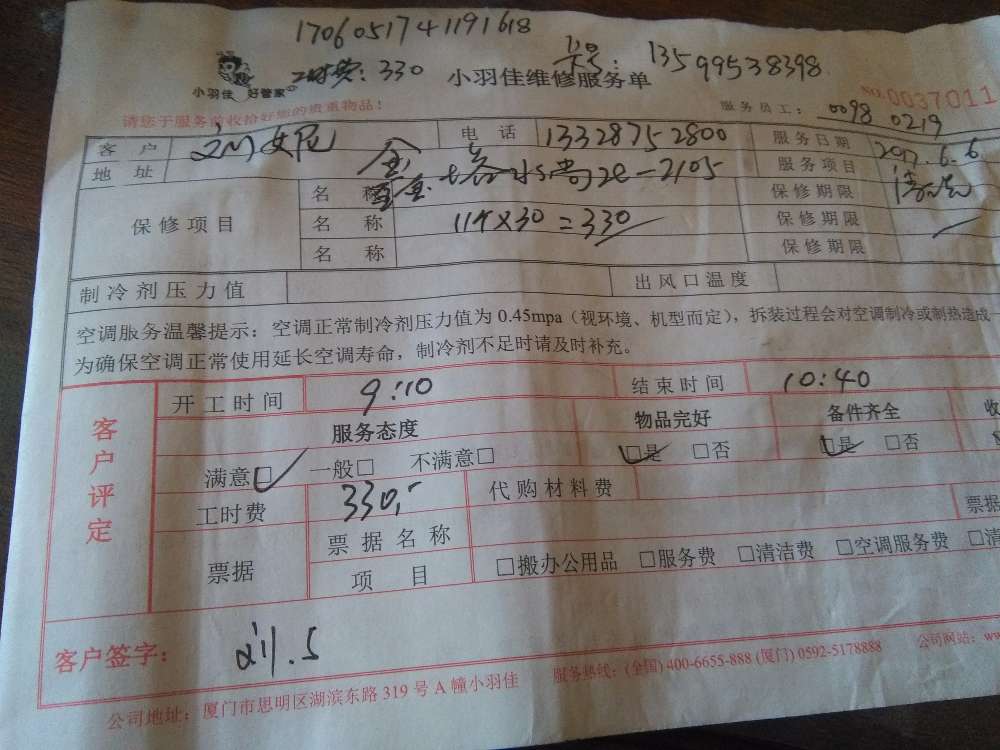 17060517411​91618
工时费：330 卡号：13599538398
小羽佳 好管家 小羽佳维修服务单 NO.0037011
请您于服务前收拾好您的贵重物品！ 服务员工： 0098 0219
客户 电话 13328752800 服务日期 2017.6.6
地址 2e-2105 服务项目
保修项目 名称 保修期限
名称 11台×30=330 保修期限
名称 保修期限
制冷剂压力值 出风口温度
空调服务温馨提示：空调正常制冷剂压力值为 0.45mpa（视环境、机型而定），拆装过程会对空调制冷或制热造成一
为确保空调正常使用延长空调寿命，制冷剂不足时请及时补充。
客户评定 开工时间 9:10 结束时间 10:40
服务态度 物品完好 备件齐全 收
满意□ 一般□ 不满意□ □是 □否 □是 □否
工时费 330.- 代购材料费
票据 票据名称 票据
项目 □搬办公用品 □服务费 □清洁费 □空调服务费 □清
客户签字：
公司地址：厦门市思明区湖滨东路 319 号 A 幢小羽佳 服务热线：(全国) 400-6655-888 (厦门) 0592-5178888 公司网站：ww